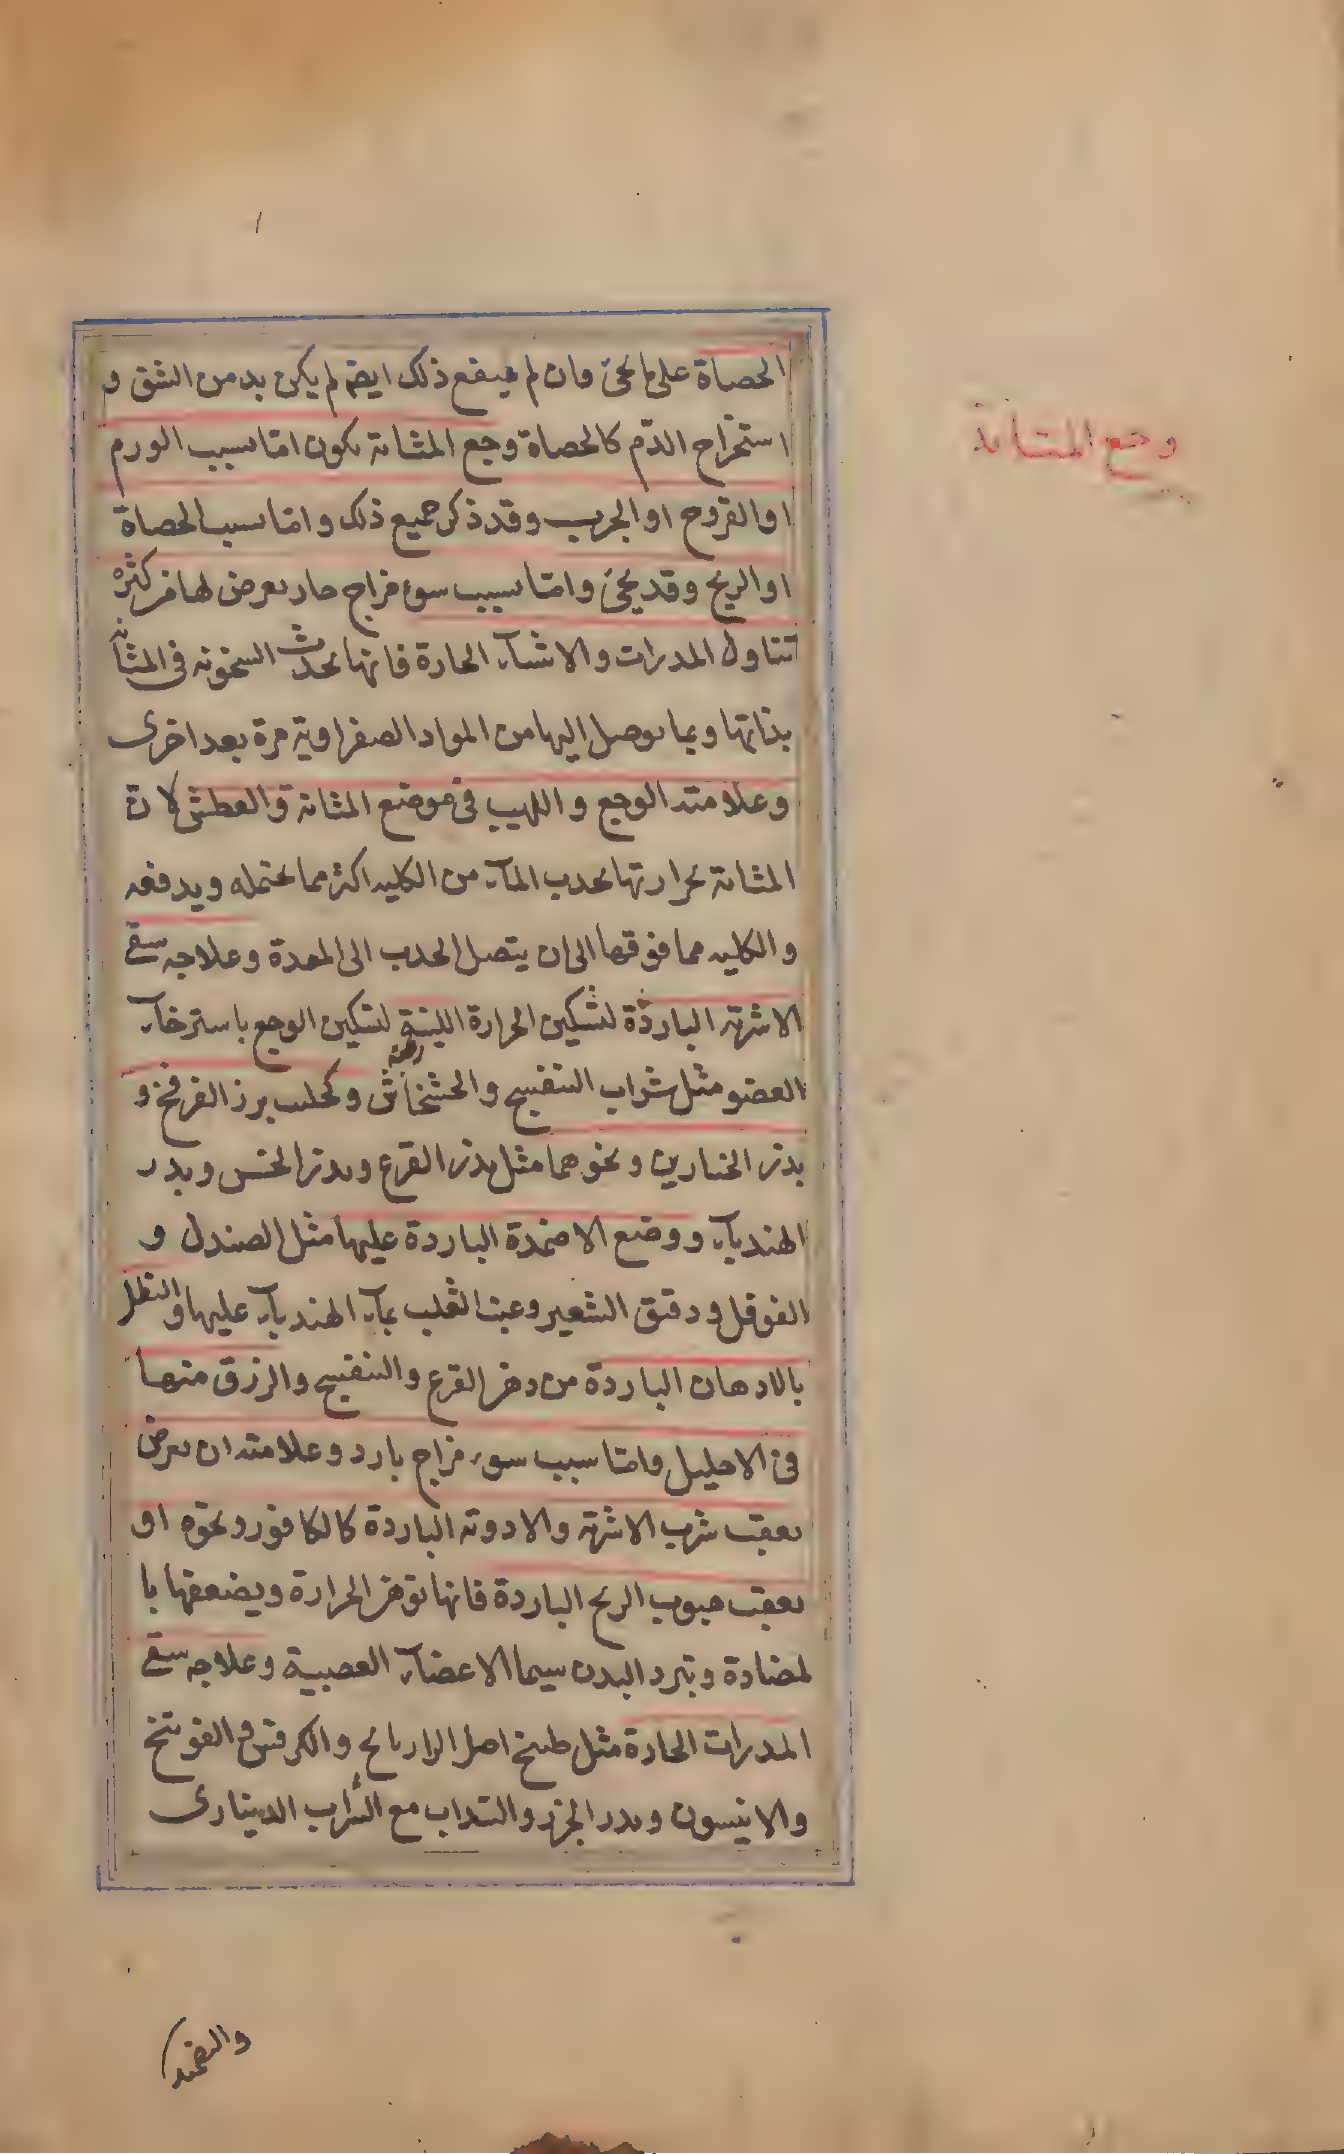 وجع المثانة
الحصاة على ما يجئ وان لم ينفع ذلك ايضا لم يكن بد من الشق و
استخراج الدّم كالحصاة وجع المثانة يكون امّا بسبب الورم
او القروح او الجرب وقد ذكر جميع ذلك وامّا بسبب الحصاة
او الريح وقد يجئ وامّا بسبب سوء مزاج حار يعرض لها من كثرة
تناول المدرات والاشياء الحارة فانها تحدث السخونة في المثانة
بذاتها وبما توصل اليها من المواد الصفراوية مرة بعد اخرى
وعلامته الوجع واللهيب في موضع المثانة والعطش لان
المثانة بحرارتها تجذب الماء من الكلية اكثر مما تحتمله ويدفعه
والكلية مما فوقها الى ان يتصل الجذب الى المعدة وعلاجه سقي
الاشربة الباردة لتسكين الحرارة اللينة لتسكين الوجع باسترخاء
العضو مثل شراب البنفسج والخشخاش وكحليب بزر الفرفخ و
بذر الخيارين ونحوهما مثل بذر القرع وبذر الخس وبذر
الهندباء ووضع الاضمدة الباردة عليها مثل الصندل و
الفوفل ودقيق الشعير وعنب الثعلب بماء الهندباء عليها والنطل
بالادهان الباردة من دهن القرع والبنفسج والزرق منها
في الاحليل وامّا بسبب سوء مزاج بارد وعلامته ان يعرض
بعقب شرب الاشربة والادوية الباردة كالكافور ونحوه او
بعقب هبوب الريح الباردة فانها توهن الحرارة ويضعفها با
لمضادة وتبرد البدن سيما الاعضاء العصبية وعلاجه سقي
المدرات الحارة مثل طبيخ اصل الرازيانج والكرفس والفوتنج
والانيسون وبذر الجزر والسداب مع الشراب الديناري
والتضميد